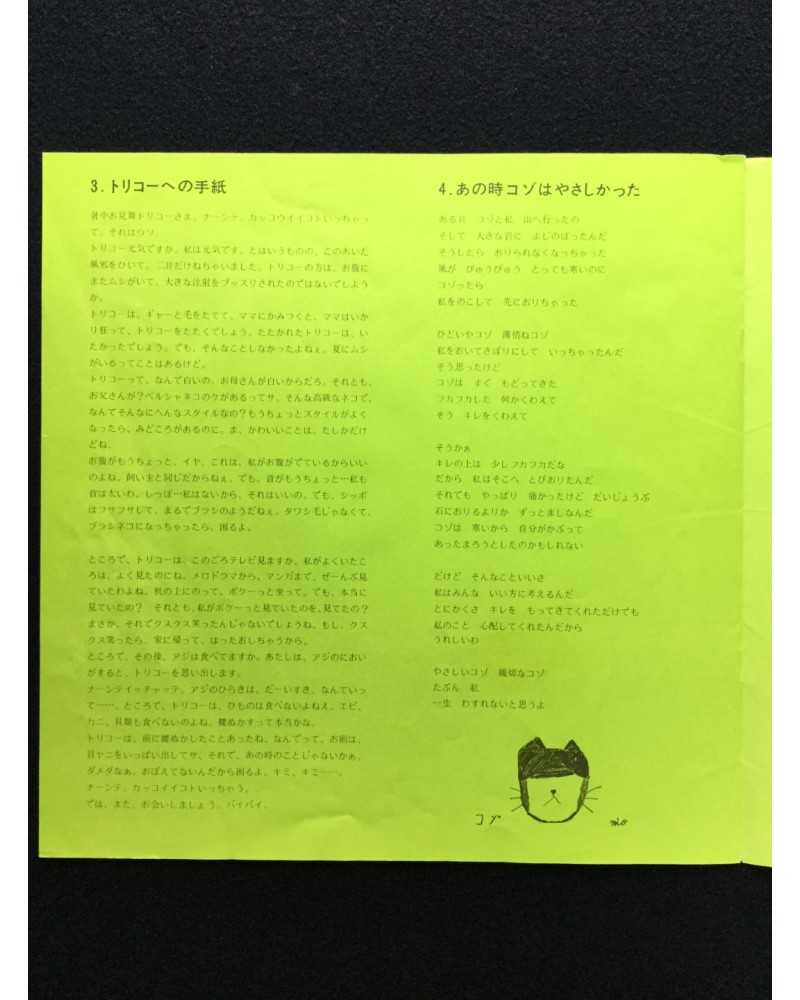 3.トリコーへの手紙
暑中お見舞トリコーさま。ナーンテ、カッコウイイコトいっちゃっ
て。それはウソ。
トリコー元気ですか。私は元気です。とはいうものの、このあいた
風邪をひいて、二日だけねちゃいました。トリコーの方は、お腹に
またムシがいて、大きな注射をブッスリされたのではないでしよう
か。
トリコーは、ギャーと毛をたてて、ママにかみつくと、ママはいか
り狂って、トリコーをたたくでしょう。たたかれたトリコーは、い
たかったでしょう。でも、そんなことしなかったよねぇ。夏にムシ
がいるってことはあるけど。
トリコーって、なんで白いの。お母さんが白いからだろ。それとも、
お父さんが？ペルシャネコのケがあるってサ、そんな高級なネコで、
なんでそんなにへんなスタイルなの？もうちょっとスタイルがよく
なったら、みどころがあるのに。ま、かわいいことは、たしかだけ
どね。
お腹がもうちょっと、イヤ、これは、私がお腹がでているからいい
のよね。飼い主と同じだからねぇ。でも、首がもうちょっと…私も
首は太いわ。しっぽ…私はないから、それはいいの。でも、シッポ
はフサフサして、まるでブラシのようだねぇ。タワシ毛じゃなくて、
ブラシネコになっちゃったら、困るよ。
ところで、トリコーは、このごろテレビ見ますか。私がよくいたこ
ろは、よく見たのにね。メロドラマから、マンガまで、ぜーんぶ見
ていたわよね。机の上にのって、ボケーっと坐って。でも、本当に
見ていたの？ それとも、私がボケーっと見ていたのを、見てたの？
まさか、それでクスクス笑ったんじゃないでしょうね。もし、クス
クス笑ったら、家に帰って、はったおしちゃうから。
ところで、その後、アジは食べてますか。あたしは、アジのにおい
がすると、トリコーを思い出します。
ナーンテイッチャッテ。アジのひらきは、だーいすき、なんていっ
て……。ところで、トリコーは、ひものは食べないよねえ。エビ、
カニ、貝類も食べないのよね。腰ぬかすって本当かな。
トリコーは、前に腰ぬかしたことあったね。なんでって、お前は、
目ヤニをいっぱい出してサ、それで、あの時のことじゃないかぁ。
ダメダなぁ。おぼえてないんだから困るよ、キミ、キミ……。
ナーンテ、カッコイイコトいっちゃう。
では、また、お会いしましょう。バイバイ。
4.あの時コゾはやさしかった
ある日 コゾと私 山へ行ったの
そして 大きな岩に よじのぼったんだ
そうしたら おりられなくなっちゃった
風が ぴゅうぴゅう とっても寒いのに
コゾったら
私をのこして 先におりちゃった
ひどいやコゾ 薄情ねコゾ
私をおいてきぼりにして いっちゃったんだ
そう思ったけど
コゾは すぐ もどってきた
フカフカした 何かくわえて
そう キレをくわえて
そうかぁ
キレの上は 少しフカフカだな
だから 私はそこへ とびおりたんだ
それでも やっぱり 痛かったけど だいじょうぶ
石におりるよりか ずっとましなんだ
コゾは 寒いから 自分がかぶって
あったまろうとしたのかもしれない
だけど そんなこといいさ
私はみんな いい方に考えるんだ
とにかくさ キレを もってきてくれただけでも
私のこと 心配してくれたんだから
うれしいわ
やさしいコゾ 親切なコゾ
たぶん 私
一生 わすれないと思うよ
コゾ